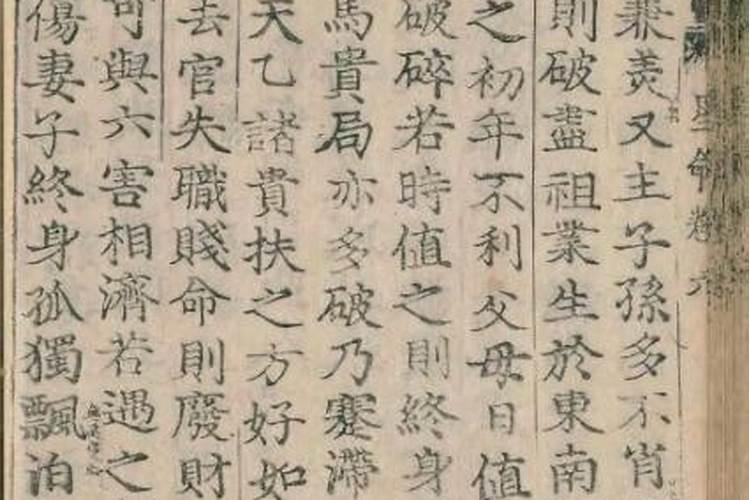 星命卷六
兼羙又主子孫多不肖
則破盡祖業生於東南
之初年不利父母日值
破碎若時值之則終身
馬貴局亦多破乃蹇滯
天乙諸貴扶之方好如
去官失職賤命則廢財
可與六害相濟若遇之
傷妻子終身孤獨飄泊